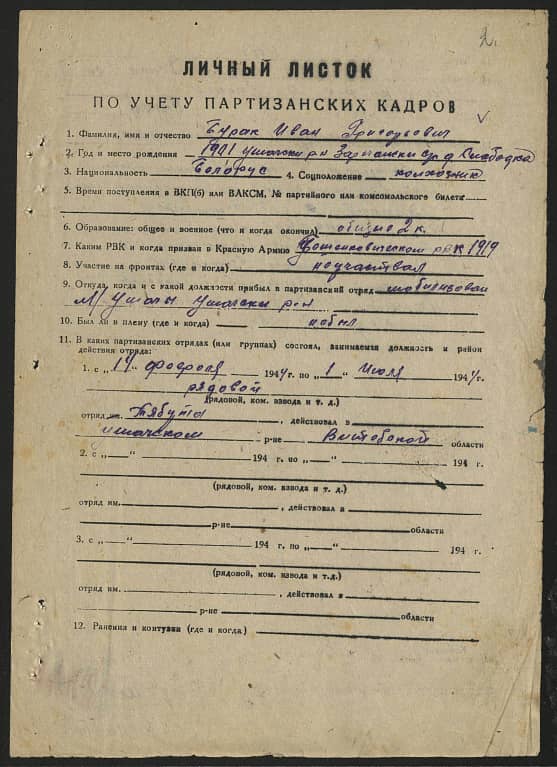 2.
ЛИЧНЫЙ ЛИСТОК
ПО УЧЕТУ ПАРТИЗАНСКИХ КАДРОВ
1. Фамилия, имя и отчество Бурак Иван Григорьевич
2. Год и место рождения 1901 Ушачски р-н д. Слободка
3. Национальность Белорус 4. Соцположение колхозник
5. Время поступления в ВКП(б) или ВЛКСМ, № партийного или комсомольского билета
6. Образование: общее и военное (что и когда окончил) общие 2 к.
7. Каким РВК и когда призван в Красную Армию РВК 1919
8. Участие на фронтах (где и когда) неучаствал
9. Откуда, когда и с какой должности прибыл в партизанский отряд мобилизован
М/Ушачы Ушачски р-н
10. Был ли в плену (где и когда) небыл
11. В каких партизанских отрядах (или группах) состоял, занимаемая должность и район
действия отряда:
1. с „ 14 " февраля 1944 г. по „ 1 " июля 1944 г.
рядовой
(рядовой, ком. взвода и т. д.)
отряд им. Тябута, действовал в
ушачском р-не Витебской области
2. с „ — " 194 г. по „ — " 194 г.
(рядовой, ком. взвода и т. д.)
отряд им. , действовал в
р-не области
3. с „ — " 194 г. по „ — " 194 г.
(рядовой, ком. взвода и т.д.)
отряд им. , действовал в
р-не области
12. Ранения и контузии (где и когда)